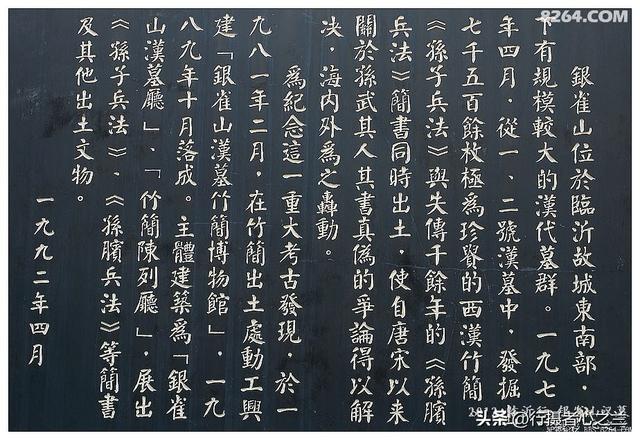 銀雀山位於臨沂故城東南部，
下有規模較大的漢代墓群。一九七
年四月，從一、二號漢墓中，發掘
七千五百餘枚極爲珍貴的西漢竹簡
《孫子兵法》與失傳千餘年的《孫臏
兵法》簡書同時出土，使自唐宋以來
關於孫武其人其書真僞的爭論得以解
决，海内外爲之轟動。
爲紀念這一重大考古發現，於一
九八一年二月，在竹簡出土處動工興
建「銀雀山漢墓竹簡博物館」，一九
八九年十月落成。主體建築爲「銀雀
山漢墓廳」、「竹簡陳列廳」，展出
《孫子兵法》、《孫臏兵法》等簡書
及其他出土文物。
一九九二年四月
8264.COM
头条@行摄者心之兰